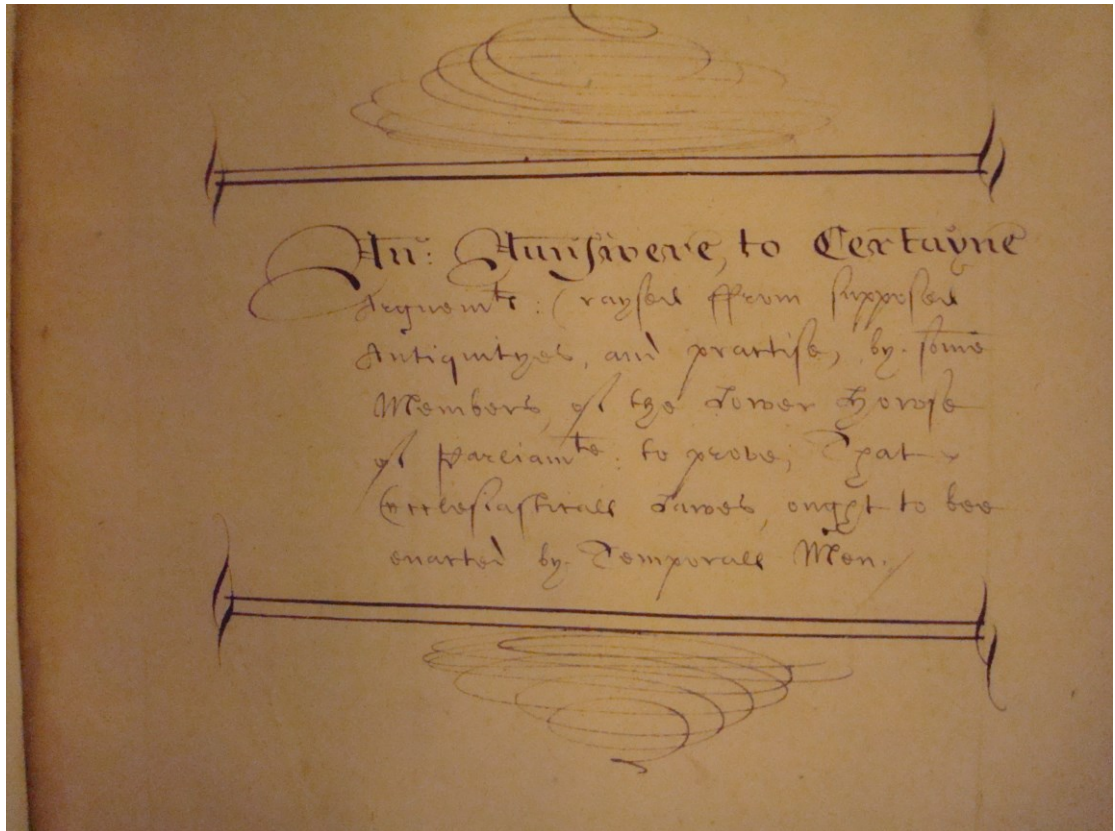 An: Aunswere, to Certayne
Arguemts: (raysed ffrom supposed
Antiquityes, and practise, by. some
Members, of the Lower Howse
of Parliamte: to prove, That
Ecclesiasticall Lawes, ought to bee
enacted by. Temporall Men./